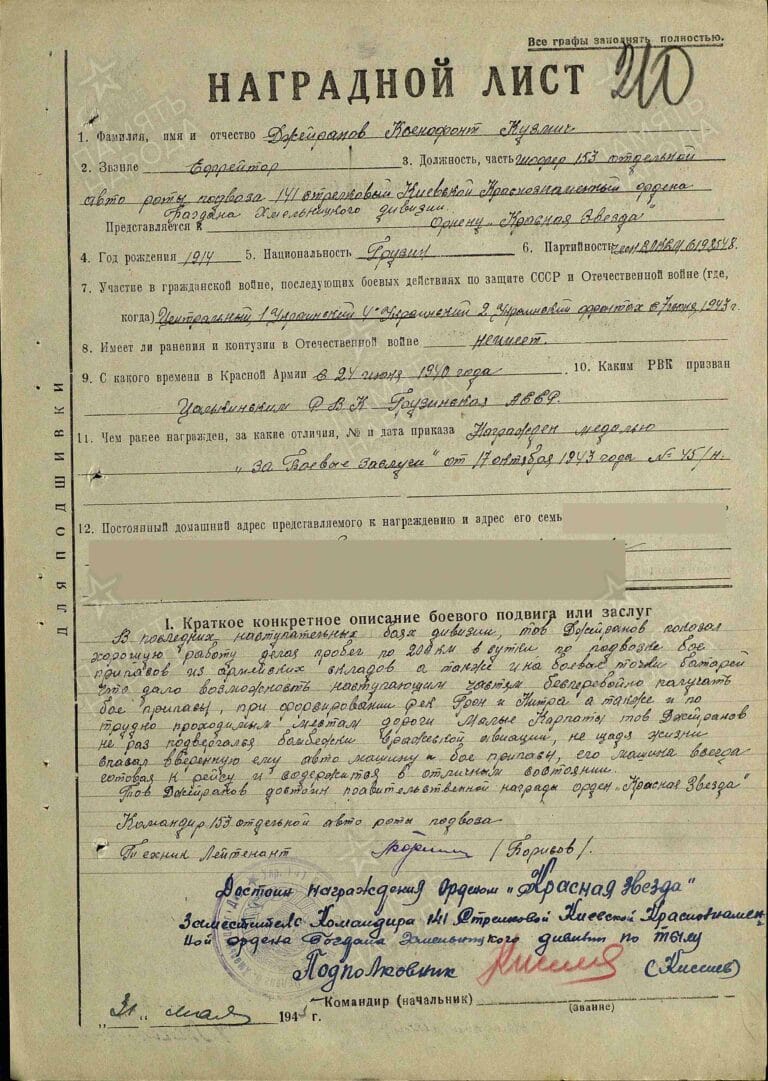 Все графы заполнять полностью.
НАГРАДНОЙ ЛИСТ 210
1. Фамилия, имя и отчество Джейранов Ксенофонт Кузмич
2. Звание Ефрейтор 3. Должность, часть шофер 153 отдельной
авто роты подвоза 141 стрелковый Киевской Краснознаменный ордена
Богдана Хмельницкого дивизии.
Представляется к Ордену „Красная Звезда"
4. Год рождения 1914 5. Национальность Грузин 6. Партийность член ВКП(б)
7. Участие в гражданской войне, последующих боевых действиях по защите СССР и Отечественной войне (где,
когда) Центральный, 1 Украинский 4 Украинский 2 Украинский фронтах с 7 июня 1943 г.
8. Имеет ли ранения и контузии в Отечественной войне неимеет.
9. С какого времени в Красной Армии с 24 июня 1940 года. 10. Каким РВК призван
Цалкинским РВК Грузинская АССР.
11. Чем ранее награжден, за какие отличия, № и дата приказа Награжден медалью
„за Боевые заслуги" от 17 октября 1943 года № 45/н.
12. Постоянный домашний адрес представляемого к награждению и адрес его семь
ДЛЯ ПОДШИВКИ
I. Краткое конкретное описание боевого подвига или заслуг
В последних наступательных боях дивизии, тов Джейранов показал
хорошую работу делая пробег по 200 км в сутки по подвозке бое
припасов из армейских складов а также и на боевые точки батарей
что дало возможность наступающим частям бесперебойно получать
бое припасы, при форсировании рек Грон и Нитра а также и по
трудно проходимым местам дороги Малые Карпаты тов Джейранов
не раз подвергался бомбежки вражеской авиации, не щадя жизни
спасал вверенную ему авто машину и бое припасы, его машина всегда
готовая к рейсу и содержится в отличным состоянии.
Тов Джейранов достоин правительственной награды орден „Красная Звезда"
Командир 153 отдельной авто роты подвоза
Техник Лейтенант /Борисов/.
Достоин награждения Орденом „Красная звезда"
Заместитель Командира 141 Стрелковой Киевской Краснознамен-
ной ордена Богдана Хмельницкого дивизии по тылу
Подполковник (Киссиев)
Командир (начальник)
(звание)
„31" мая 1945 г.